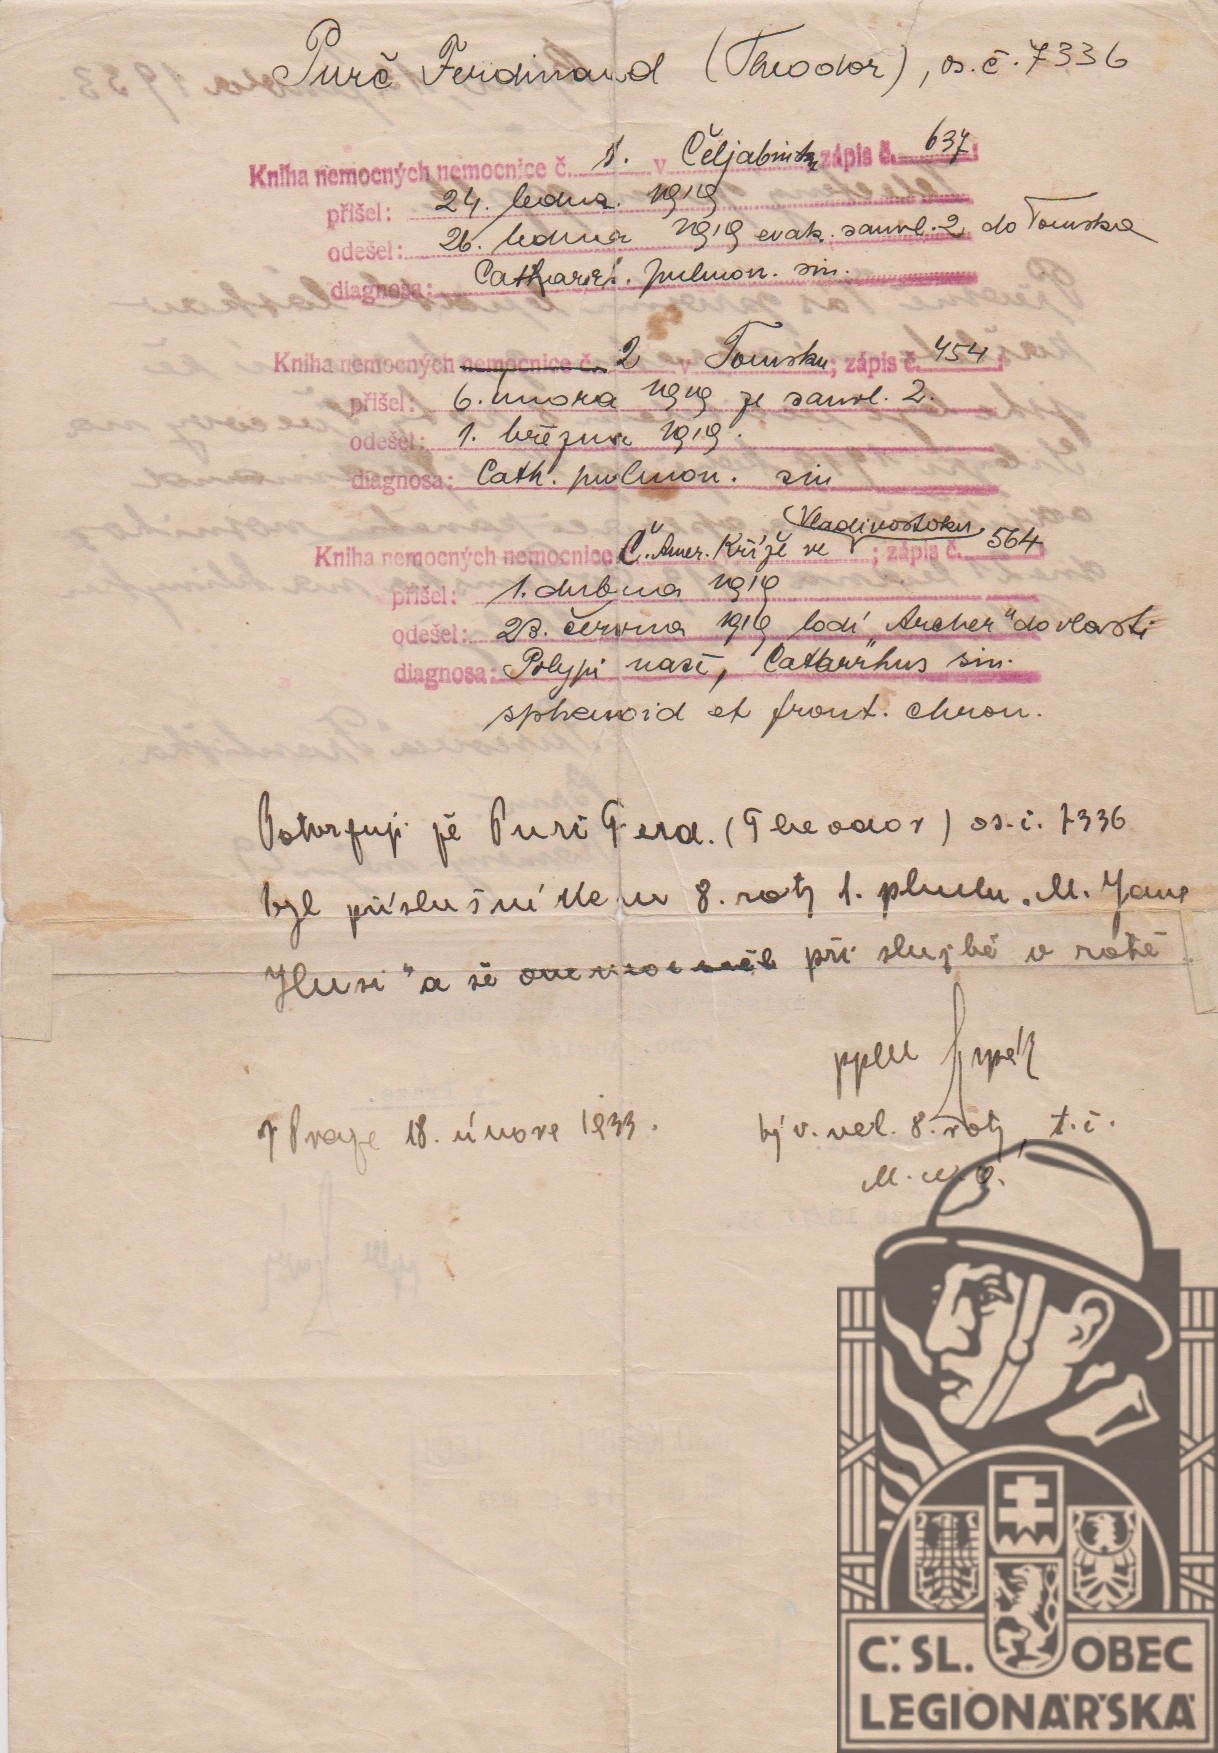 Purč Ferdinand (Theodor), os. č. 7336
Kniha nemocných nemocnice č. 1. v Čeljabinsku zápis č. 637
přišel: 24. ledna. 1919
odešel: 26. ledna 1919 evak. sanvl. 2 do Tomska
diagnosa: Cathar. pulmon. sin.
Kniha nemocných nemocnice č. 2 v Tomsku; zápis č. 454
přišel: 6. února 1919 ze sanvl. 2.
odešel: 1. března 1919.
diagnosa: Cath. pulmon. sin
Vladivostoku
Kniha nemocných nemocnice Č. Amer. Kříže ve ; zápis č. 564
přišel: 1. dubna 1919
odešel: 23. června 1919 lodí „Archer" do vlasti
diagnosa: Polypi nasi, Catarrhus sin.
sphenoid et front. chron.
Potvrzuji že Purč Ferd. (Theodor) os. č. 7336
byl příslušníkem 8. roty 1. pluku „M. Jana
Husi" a že onemocněl při službě v rotě
pplk
V Praze 18. února 1933.
býv. vel. 8. roty, t. č.
M. N. O.
Č. SL. OBEC
LEGIONÁŘSKÁ